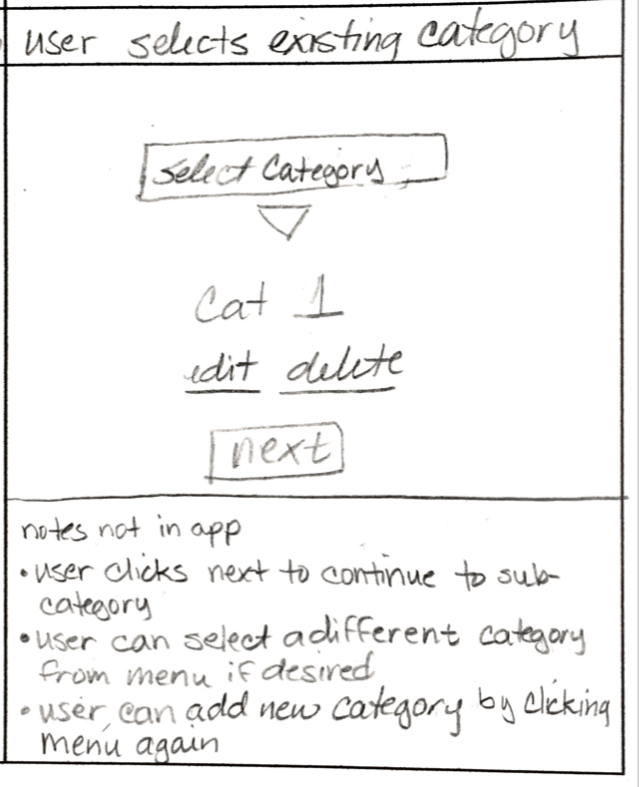 user selects existing category
select Category
Cat 1
edit delete
next
notes not in app
• user clicks next to continue to sub-
category
• user can select a different category
from menu if desired
• user can add new category by clicking
menu again